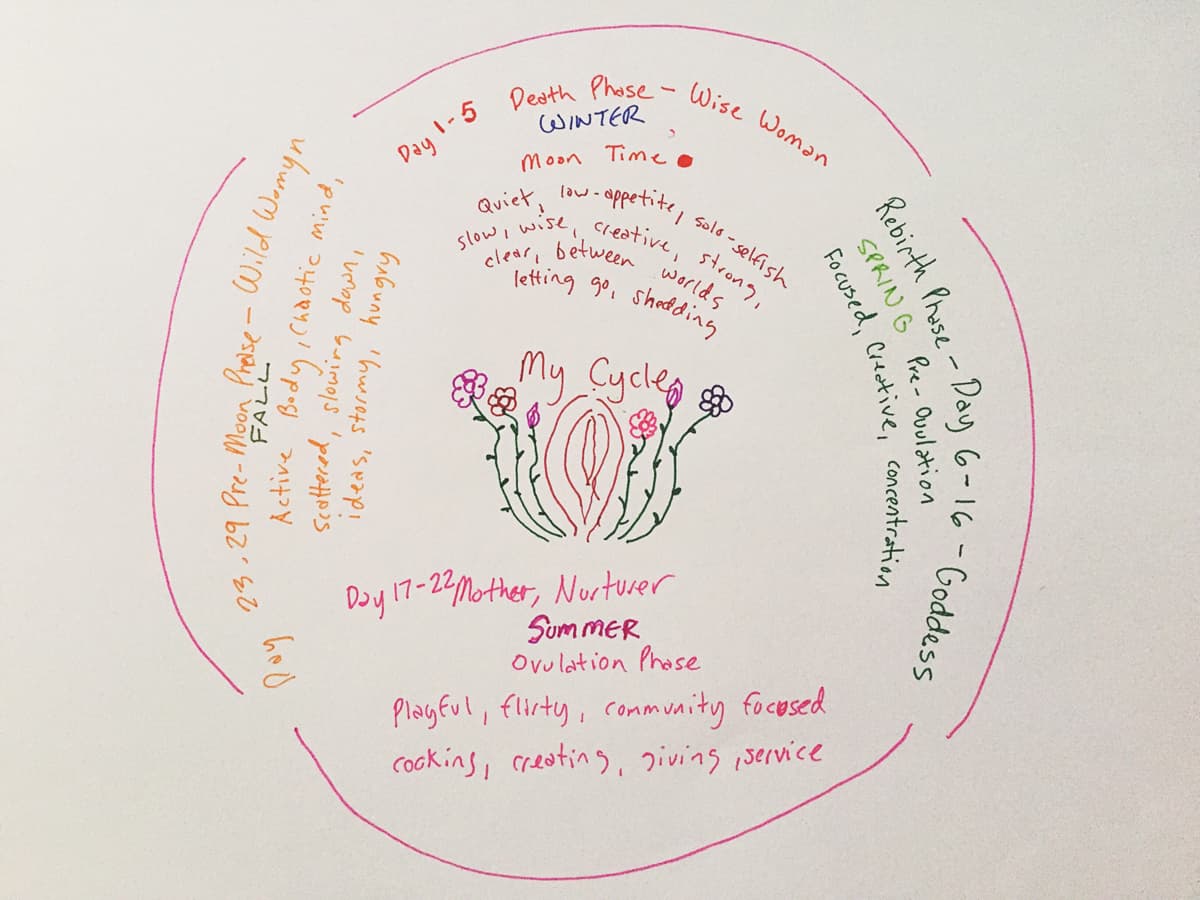 Day 1-5 Death Phase - Wise Woman
WINTER
Moon Time
Quiet, low-appetite, solo-selfish
slow, wise, creative, strong,
clear, between worlds
letting go, shedding
Rebirth Phase - Day 6-16 - Goddess
SPRING Pre-Ovulation
Focused, Creative, concentration
My Cycle
Day 17-22 Mother, Nurturer
SUMMER
Ovulation Phase
Playful, flirty, community focused
cooking, creating, giving, service
Day 23-29 Pre-Moon Phase - Wild Womyn
FALL
Active Body, Chaotic mind,
Scattered, slowing down,
ideas, stormy, hungry